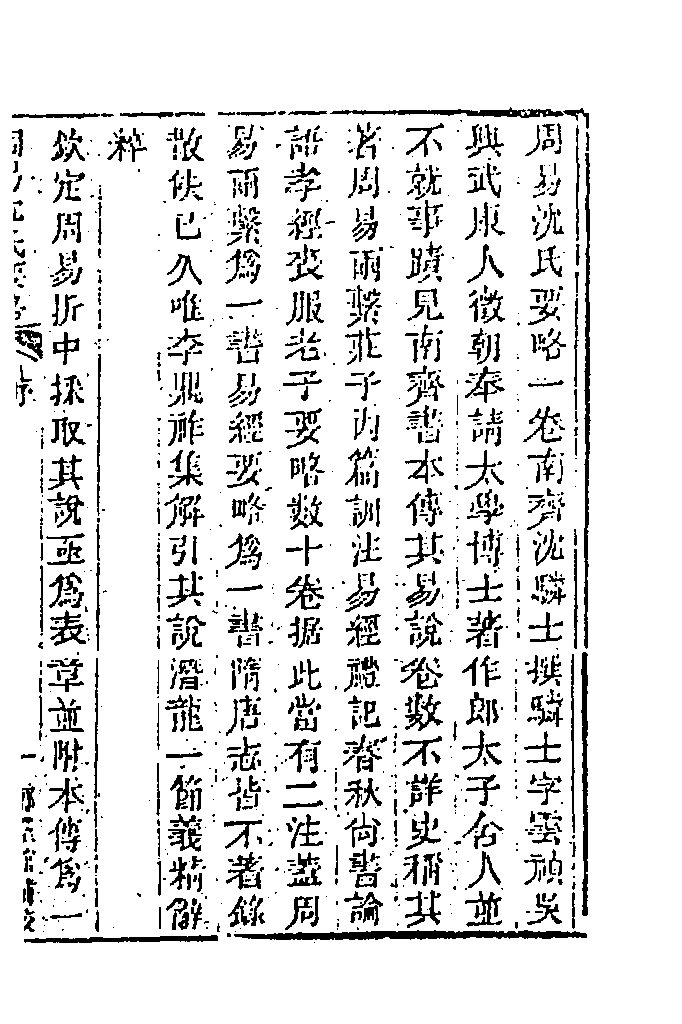 周易沈氏要略一卷南齊沈驎士撰驎士字雲禎吳
興武康人徵朝奉請太學博士著作郎太子舍人並
不就事蹟見南齊書本傳其易說卷數不詳史稱其
著周易兩繫莊子內篇訓注易經禮記春秋尚書論
語孝經喪服老子要略數十卷据此當有二注蓋周
易兩繫爲一書易經要略爲一書隋唐志皆不著錄
散佚已久唯李鼎祚集解引其說潛龍一節義精解
粹
欽定周易折中採取其說亟爲表章並附本傳爲一
周易沈氏要略 序 一